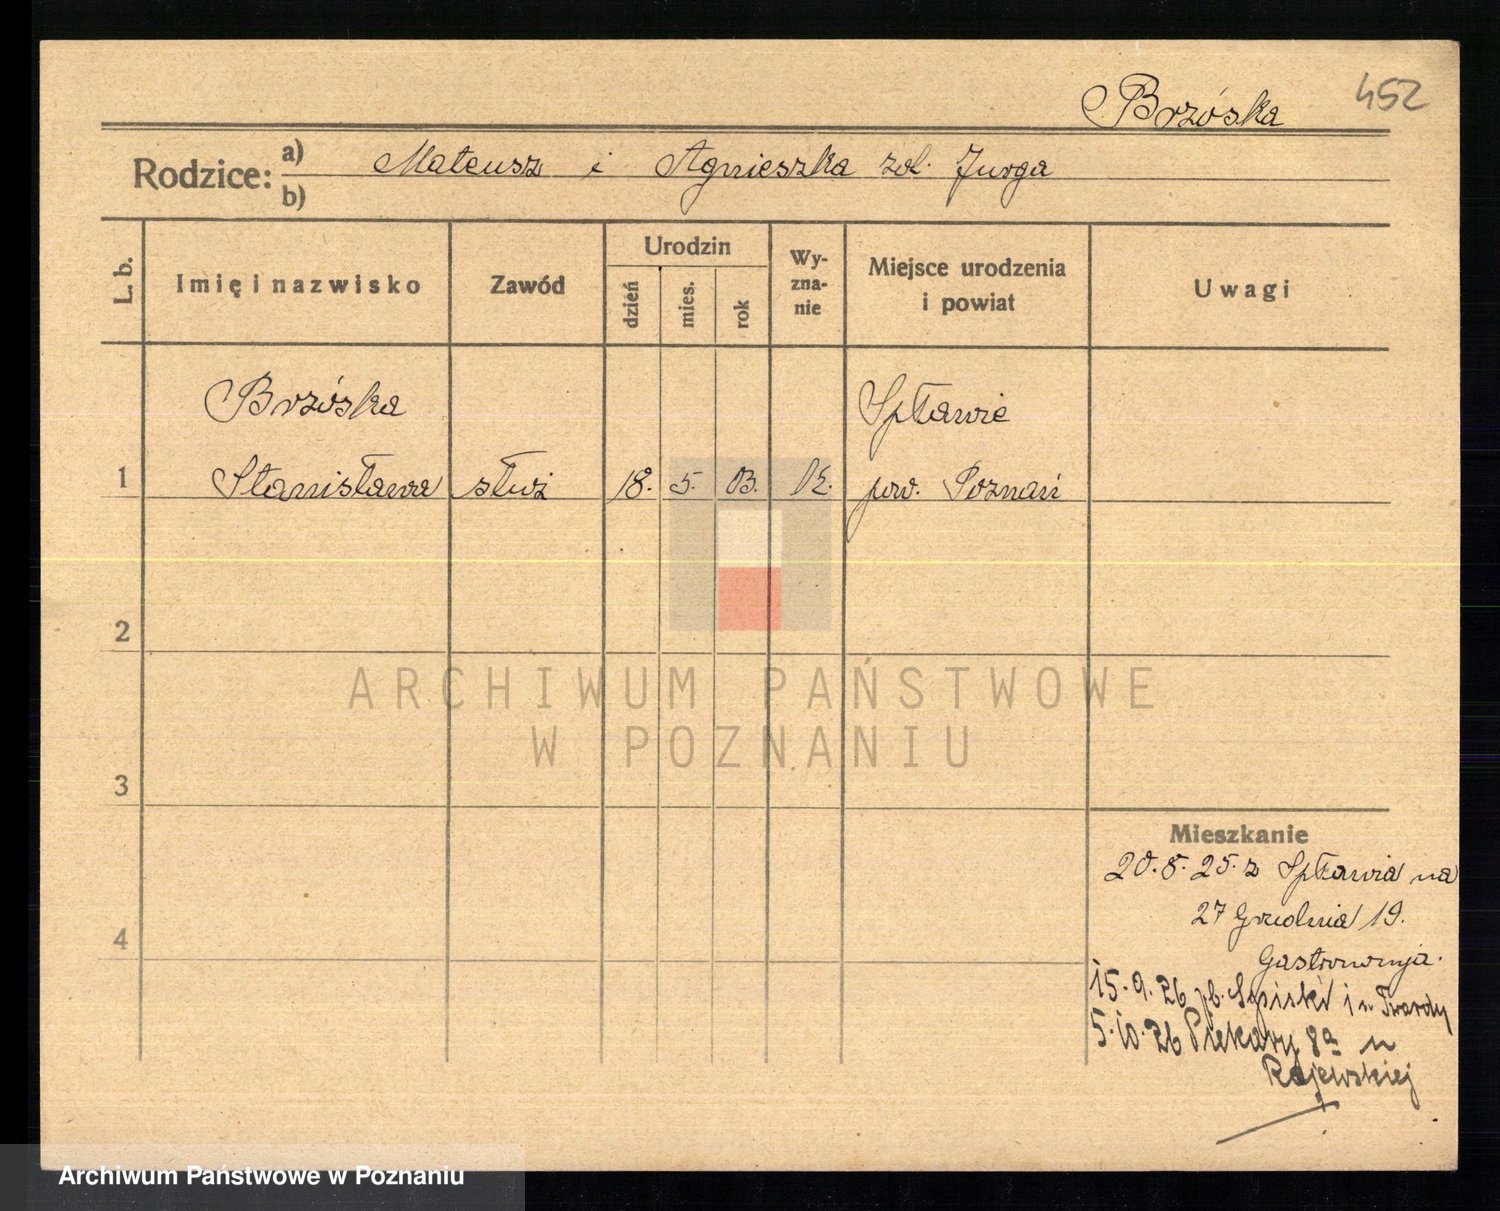 Brzóska 452
Rodzice: a) Mateusz i Agnieszka zd. Jurga
b)
L. b. Imię i nazwisko Zawód Urodzin dzień mies. rok Wyznanie Miejsce urodzenia i powiat Uwagi
Brzóska Spławie
1 Stanisława służ 18. 5. 03. K. pow. Poznań
2
ARCHIWUM PAŃSTWOWE
W POZNANIU
3
Mieszkanie
20.8.25. z Spławia na
27 Grudnia 19.
4
Gastronomja.
15.9.26 1 u. Twardy
5.10.26 Piekary 8a u
Rajewskiej
Archiwum Państwowe w Poznaniu